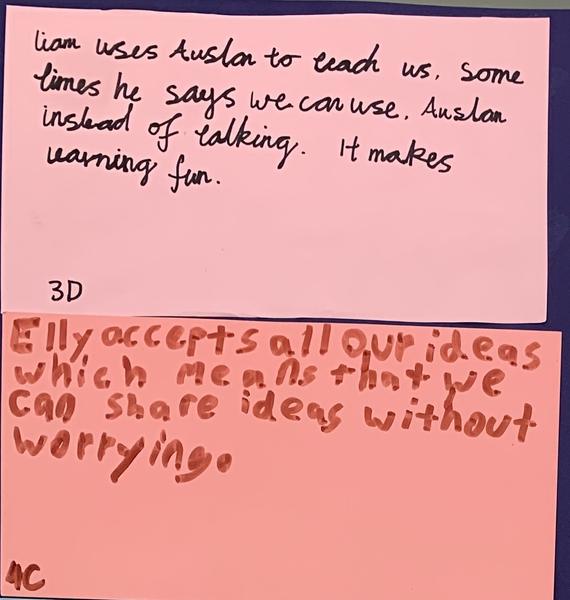 Liam uses Auslan to teach us. Some
times he says we can use. Auslan
instead of talking. It makes
learning fun.
3D
Elly accepts all our ideas
which means that we
can share ideas without
worrying.
4C